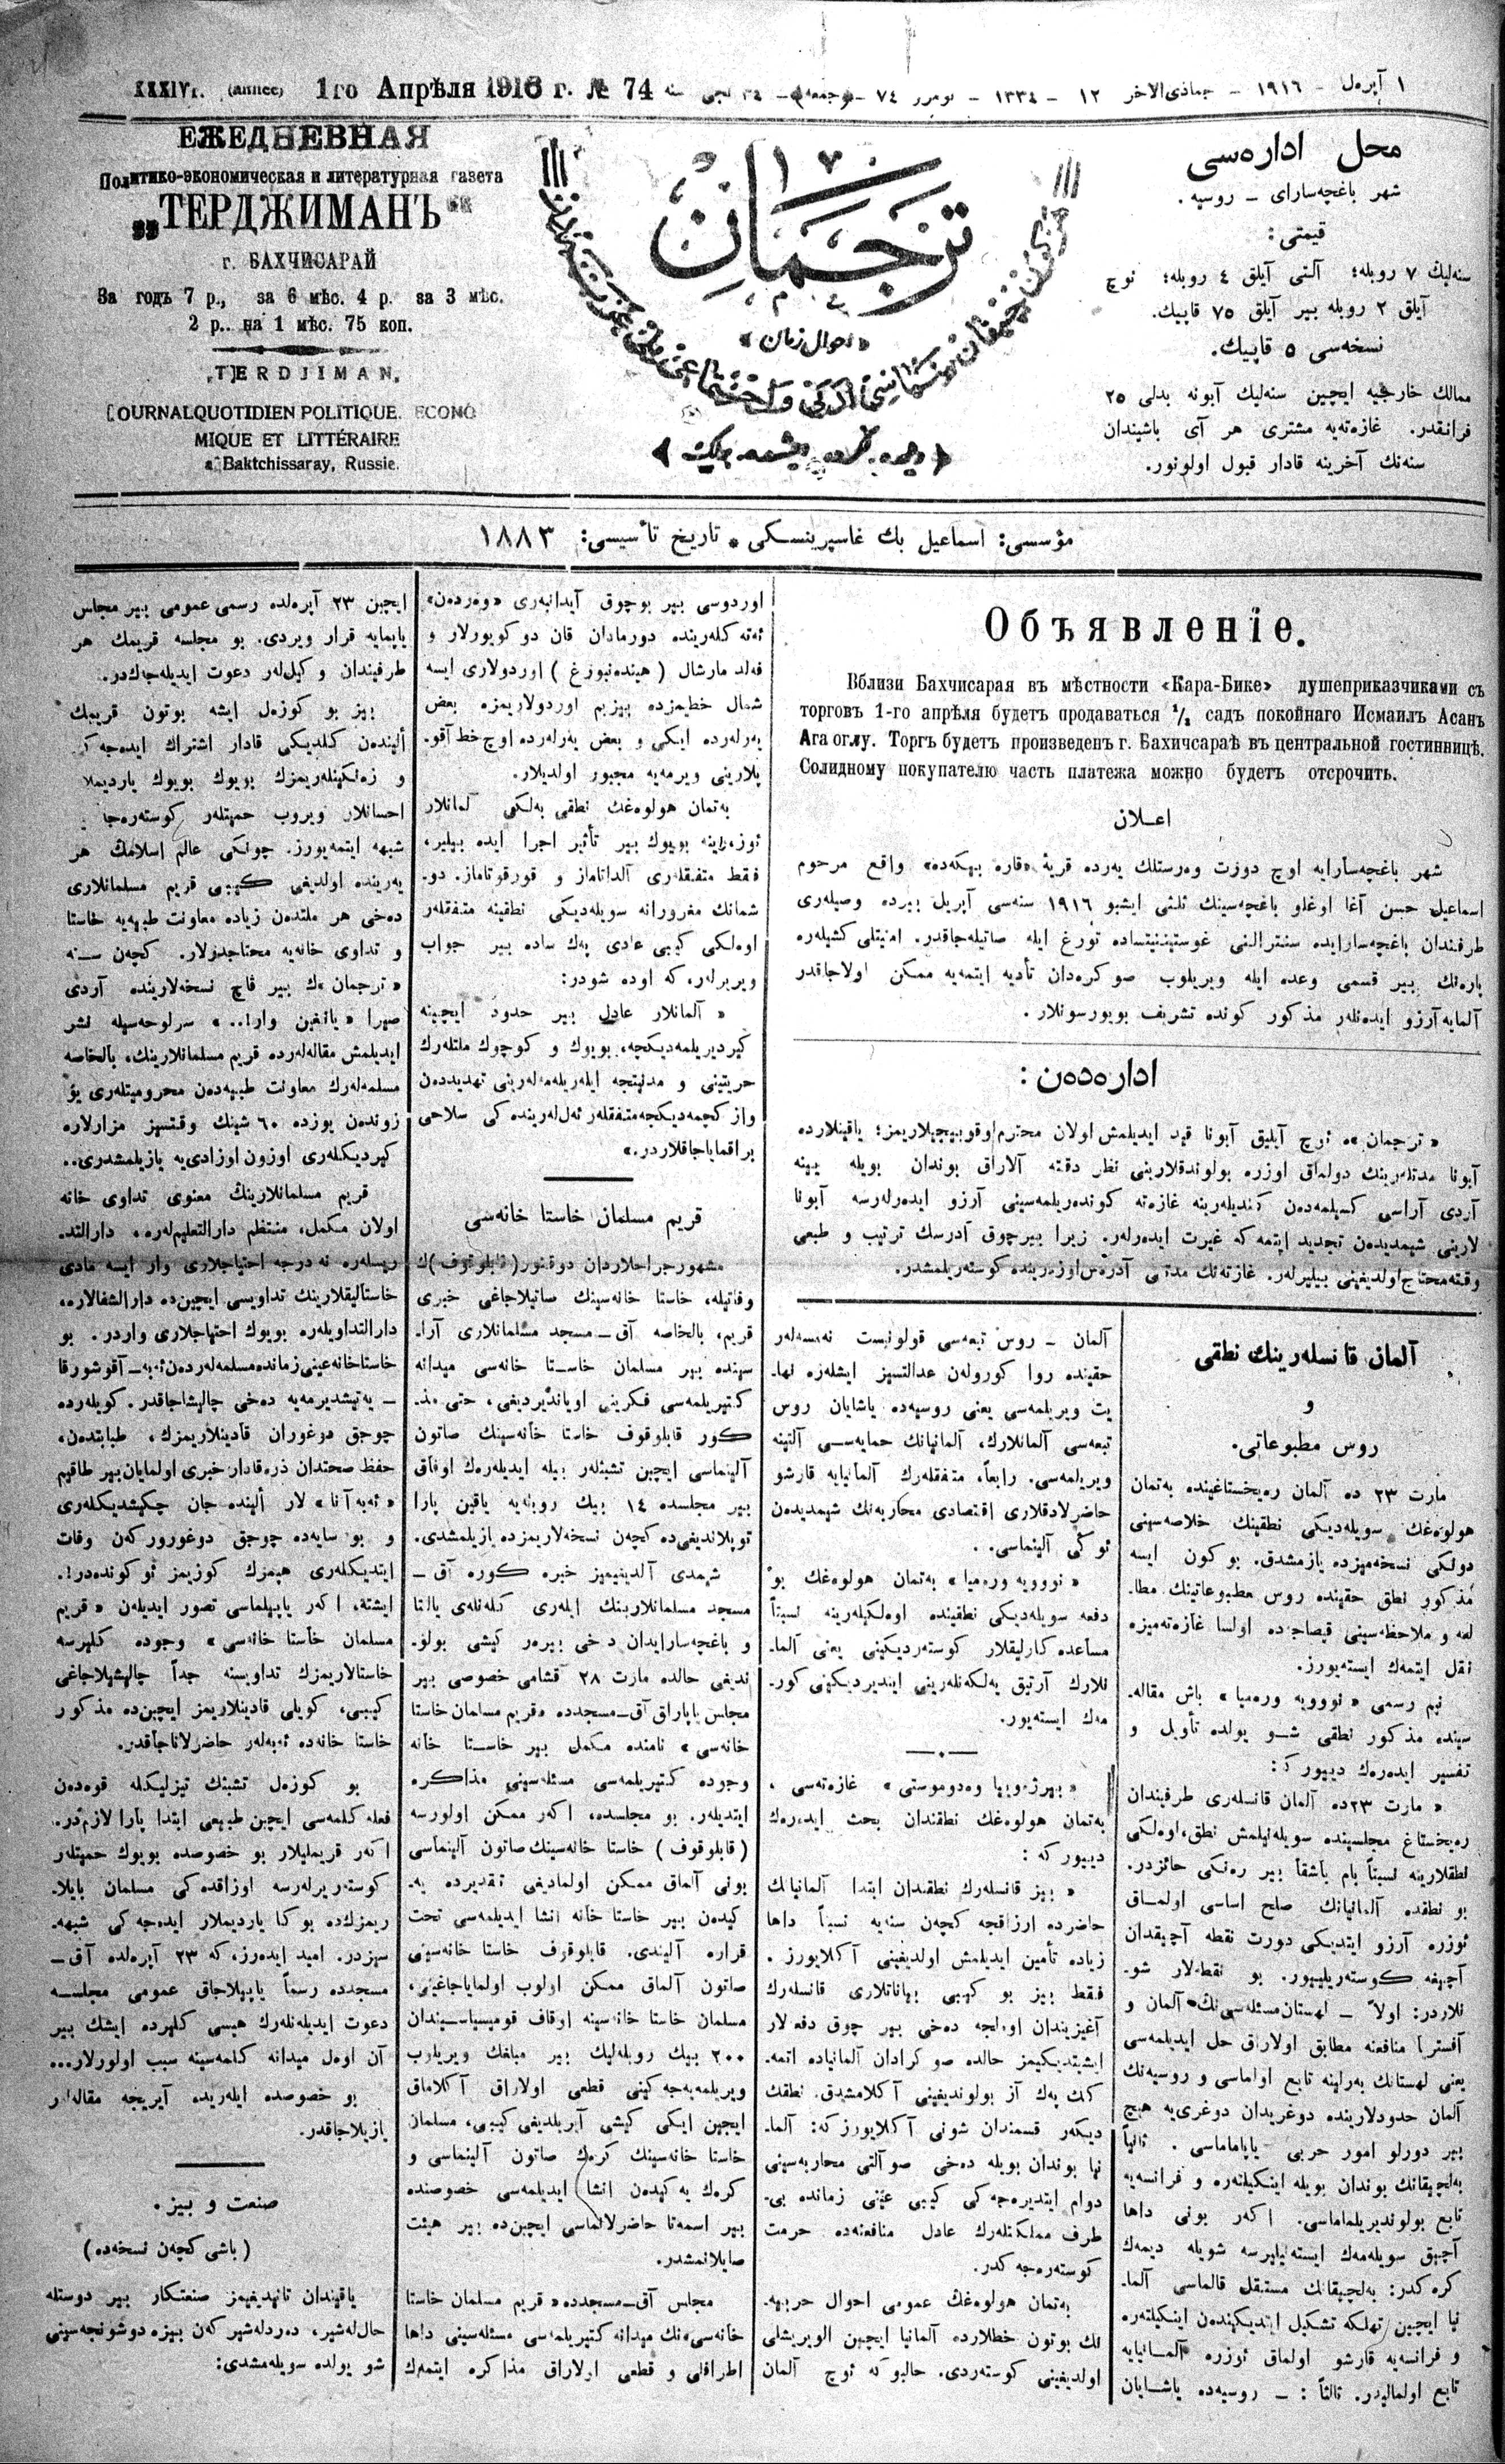 XXXIVг. (année) 1го Апрѣля 1916 г. № 74
١ آپره‌ل – ١٩١٦ – جماذی‌الاخر ١٢ – ١٣٣٤ – نومرر ٧٤
ЕЖЕДНЕВНАЯ
Политико-экономическая и литературная газета
„ТЕРДЖИМАНЪ“
г. БАХЧИСАРАЙ
За годъ 7 р., за 6 мѣс. 4 р. за 3 мѣс.
2 р.. на 1 мѣс. 75 коп.
„TERDJIMAN„
JOURNAL QUOTIDIEN POLITIQUE. ECONO
MIQUE ET LITTÉRAIRE
a Baktchissaray, Russie.
ترجمان
«احوال زمان»
محل اداره‌سی
شهر باغچه‌سارای – روسیه.
قیمتی:
سنه‌لیك ٧ روبله؛ آلتی آیلق ٤ روبله؛ ئوچ
آیلق ٢ روبله بیر آیلق ٧٥ قاپیك.
نسخه‌سی ٥ قاپیك.
ممالك خارجیه ایچین سنه‌لیك آبونه بدلی ٢٥
فرانقدر. غازه‌ته‌یه مشتری هر آی باشیندان
سنه‌نك آخرینه قادار قبول اولونور.
مؤسسی: اسماعیل بك غاسپرینسکی • تاریخ تأسیسی: ١٨٨٣
Объявленіе.
Вблизи Бахчисарая въ мѣстности «Кара-Бике» душеприказчиками съ
торговъ 1-го апрѣля будетъ продаваться ½ садъ покойнаго Исмаилъ Асанъ
Ага оглу. Торгъ будетъ произведенъ г. Бахичсараѣ въ центральной гостинницѣ.
Солидному покупателю часть платежа можно будетъ отсрочить.
اعـلان
شهر باغچه‌سارایه اوچ دورت وه‌رستلك یه‌رده قریهٔ «قاره بیکه‌ده» واقع مرحوم
اسماعیل حسن آغا اوغلو باغچه‌سینك ثلثی ایشبو ١٩١٦ سنه‌سی آپریل بیرده وصیله‌ری
طرفندان باغچه‌سارایده سنترالنی غوستیننیتساده تورغ ایله صاتیله‌جاقدر. امنیتلی کشیله‌ره
پاره‌نك بیر قسمی وعده ایله ویریلوب صوکره‌دان تأدیه ایتمه‌یه ممکن اولاجاقدر
آلمایه آرزو ایده‌نله‌ر مذکور کونده تشریف بویورسونلار.
اداره‌ده‌ن:
«ترجمان»ه ئوچ آیلیق آبونا قید ایدیلمش اولان محترم اوقوییجیلاریمز؛ یاقینلارده
آبونا مدتله‌رینك دولماق اوزره بولوندقلارینی نظر دقته آلاراق بوندان بویله یینه
آردی آراسی کسیلمه‌دن کندیله‌رینه غازه‌ته کونده‌ریلمه‌سینی آرزو ایده‌رله‌رسه آبونا
لارینی شیمدیدن تجدید ایتمه که غیرت ایده‌رله‌ر. زیرا بیرچوق آدرسك ترتیب و طبعی
وقته محتاج اولدیغینی بیلیرله‌ر. غازته‌نك مدتی آدره‌س اوزه‌رینده کوسته‌ریلمشدر.
آلمان قانسله‌رینك نطقی
و
روس مطبوعاتی.
مارت ٢٣ ده آلمان ره‌یخستاغینده به‌تمان
هولوه‌غك سویله‌دیکی نطقینك خلاصه‌سینی
دونکی نسخه‌میزده یازمشدق. بو کون ایسه
مذکور نطق حقینده روس مطبوعاتینك مطا.
لعه و ملاحظه‌سینی قیصاجه‌ده اولسا غازه‌ته‌میزه
نقل ایتمه‌ك ایسته‌یورز.
نیم رسمی «نوویه وره‌میا» باش مقاله.
سینده مذکور نطقی شـو یولده تأویل و
تفسیر ایده‌رك دییور که:
«مارت ٢٣ده آلمان قانسله‌ری طرفیندان
ره‌یخستاغ مجلسینده سویله‌نیلمش نطق، اوه‌لکی
نطقلارینه نسبتاً بام باشقا بیر ره‌نکی حائزدر.
بو نطقده آلمانیانك صلح اساسی اولمـاق
ئوزره آرزو ایتدیکی دورت نقطه آچیقدان
آچیغه کوسته‌ریلییور. بو نقطه‌لار شو.
نلاردر: اولاً – لهستان مسئله‌سی‌نك آلمان و
آفستریا منافعنه مطابق اولاراق حل ایدیلمه‌سی
یعنی لهستانك به‌رلینه تابع اولماسی و روسیه‌نك
آلمان حدودلارینده دوغریدان دوغری‌یه هیچ
بیر دورلو امور حربی یاپاماماسی. ثانیاً
به‌لچیقانك بوندان بویله اینکیلته‌ره و فرانسه‌یه
تابع بولوندیریلماماسی. اکه‌ر بونی داها
آچیق سویله‌مه‌ك ایسته‌نیلیرسه شویله دیمه‌ك
کره‌کدر: به‌لچیقانك مستقل قالماسی آلما.
نیا ایچین تهلکه تشکیل ایتدیکینده‌ن اینکیلته‌ره
و فرانسه‌یه قارشو اولماق ئوزره آلمـانیایه
تابع اولمالیدر. ثالثاً: – روسیه‌ده یاشـایان
آلمان – روس تبعه‌سی قولونیست نه‌مسه‌له‌ر
حقینده روا کورولن عدالتسیز ایشله‌ره نها.
یت ویریلمه‌سی یعنی روسیه‌ده یاشایان روس
تبعه‌سی آلمانلارك، آلمانیانك حمایه‌سـی آلتینه
ویریلمه‌سی. رابعاً، متفقله‌رك آلمانیایه قارشو
حاضرلادقلاری اقتصادی محاربه‌نك شیمدیدن
ئوکی آلینماسی..
«نوویه وره‌میا» به‌تمان هولوه‌غك بو
دفعه سویله‌دیکی نطقینده اوه‌لکیله‌رینه نسبتاً
مساعده‌کارلیقلار کوسته‌ردیکینی یعنی آلما.
نلارك آرتیق یه‌لکه‌نله‌رینی ایندیردیکیی کور.
مه‌ك ایسته‌یور.
«بیرژه‌ویا وه‌دوموستی» غازه‌ته‌سی،
به‌تمان هولوه‌غك نطقندان بحث ایده‌ره‌ك
دییور که:
«بیز قانسله‌رك نطقندان ابتدا آلمانیانك
حاضرده ارزاقجه کچه‌ن سنه‌یه نسبتاً داها
زیاده تأمین ایدیلمش اولدیغینی آکلایورز.
فقط بیز بو کیبی بیاناتلاری قانسله‌رك
آغیزیندان اوه‌لجه ده‌خی بیر چوق دفعه‌لار
ایشیتدیکیمز حالده صوکرادان آلمانیاده اتمه.
کك یه‌ك آز بولوندیغینی آکلامشدق. نطقك
دیکه‌ر قسمندان شونی آکلایورزکه: آلما.
نیا بوندان بویله ده‌خی صو آلتی محاربه‌سینی
دوام ایتدیره‌جه‌کی کیبی عینی زمانده بی.
طرف مملکتله‌رك عادل منافعنه‌ده حرمت
کوسته‌ره‌جه‌کدر.
به‌تمان هولوه‌غك عمومی احوال حربیه.
نك بوتون خطلارده آلمانیا ایچین الویریشلی
اولدیغینی کوسته‌ردی. حالبوکه ئوچ آلمان
اوردوسی بیر بوچوق آیدانبه‌ری «وه‌ردن»
ئه‌ته‌کله‌رینده دورمادان قان دوکویورلار و
فه‌لد مارشال (هینده‌نبورغ) اوردولاری ایسه
شمال خطیمزده بیزیم اوردولاریمزه بعض
یه‌رله‌رده ایکی و بعض یه‌رله‌رده اوچ خط آقو.
پلارینی ویرمه‌یه مجبور اولدیلار.
به‌تمان هولوه‌غك نطقی به‌لکی آلمانلار
ئوزه‌رینه بویوك بیر تأثیر اجرا ایده بیلیر،
فقط متفقله‌ری آلداتاماز و قورقوتاماز. دو.
شمانك مغرورانه سویله‌دیکی نطقینه متفقله‌ر
اوه‌لکی کیبی عادی یه‌ك ساده بیر جواب
ویریرله‌ر، که اوده شودر:
«آلمانلار عادل بیر حدود ایچینه
کیردیریلمه‌دیکچه، بویوك و کوچوك ملتله‌رك
حریتینی و مدنیتجه ایله‌ریله‌مه‌له‌رینی تهدیددن
واز کچمه‌دیکچه متفقله‌ر ئه‌لله‌رینده‌کی سلاحی
براقمایاجاقلاردر.»
قریم مسلمان خاستا خانه‌سی
مشهور جراحلاردان دوقتور (قابلوقوف)ك
وفاتیله، خاستا خانه‌سینك صاتیلاجاغی خبری
قریم، بالخاصه آق–مسجد مسلمانلاری آرا.
سینده بیر مسلمان خاسـتا خانه‌سی میدانه
کتیریلمه‌سی فکرینی اویاندیردیغی، حتی مذ.
کور قابلوقوف خاستا خانه‌سینك صاتون
آلینماسی ایچین تشبثله‌ر بیله ایدیله‌ره‌ك اوفاق
بیر مجلسده ١٤ بیك روبله‌یه یاقین پارا
توپلاندیغی‌ده کچه‌ن نسخه‌لاریمزده یازیلمشدی.
شیمدی آلدیغیمز خبره کوره آق–
مسجد مسلمانلارینك ایله‌ری کله‌نله‌ی یالتا
و باغچه‌سارایدان دخی بیره‌ر کیشی بولو.
ندیغی حالده مارت ٢٨ آقشامی خصوصی بیر
مجلس یاپاراق آق–مسجدده «قریم مسلمان خاستا
خانه‌سی» نامنده مکمل بیر خاسـتا خانه
وجوده کتیریلمه‌سی مسئله‌سینی مذاکره
ایتدیله‌ر. بو مجلسده، اکه‌ر ممکن اولورسه
(قابلوقوف) خاستا خانه‌سینك صاتون آلینماسی
بونی آلماق ممکن اولمادیغی تقدیرده یه.
کیده‌ن بیر خاستا خانه انشا ایدیلمه‌سی تحت
قراره آلیندی. قابلوقوف خاستا خانه‌سینی
صاتون آلماق ممکن اولوب اولمایاجاغینی،
مسلمان خاستا خانه‌سینه اوقاف قومیسیاسـیندان
٢٠٠ بیك روبله‌لیك بیر مبلغك ویریلوب
ویریلمه‌یه‌جه‌کینی قطعی اولاراق آکلاماق
ایچین ایکی کیشی آیریلدیغی کیبی، مسلمان
خاستا خانه‌سینك کره‌ك صاتون آلینماسی و
کره‌ك یه‌کیده‌ن انشا ایدیلمه‌سی خصوصنده
بیر اسمه‌تا حاضرلانماسی ایچین‌ده بیر هیئت
صایلانمشدر.
مجلس آق–مسجدده «قریم مسلمان خاستا
خانه‌سی»نك میدانه کتیریلمه‌سی مسئله‌سینی داها
اطرافلی و قطعی اولاراق مذاکره ایتمه‌ك
ایچین ٢٣ آپره‌لده رسمی عمومی بیر مجلس
یاپمایه قرار ویردی. بو مجلسه قریمك هر
طرفیندان وکیل‌له‌ر دعوت ایدیله‌جه‌ك‌در.
بیز بو کوزه‌ل ایشه بوتون قریمك
ألینده‌ن کلدیکی قادار اشتراك ایده‌جه‌کـ
و زه‌نکینله‌ریمزك بویوك بویوك یاردیملا
احسانلار ویروب حمیتله‌ر کوسته‌ره‌جا
شبهه ایتمه‌یورز. چونکی عالم اسلامك هر
یه‌رینده اولدیغی کـیبی قریم مسلمانلاری
ده‌خی هر ملتدن زیاده معاونت طبیه‌یه خاستا
و تداوی خانه‌یه محتاجدرلار. کچه‌ن سـنه
«ترجمان»ك بیر قاچ نسخه‌لارینده آردی
صیرا «یانغین وار!..» سرلوحه‌سیله نشر
ایدیلمش مقاله‌له‌رده قریم مسلمانلارینك، بالخاصه
مسلمه‌له‌رك معاونت طبیه‌ده‌ن محرومیتله‌ری یؤ
زوندن یوزده ٦٠ شینك وقتسیز مزارلاره
کیردیکله‌ری اوزون اوزادی‌یه یازیلمشدری..
قریم مسلمانلارینك معنوی تداوی خانه
اولان مکمل، منتظم دارالتعلیم‌له‌ره، دارالتد.
ریسله‌ره نه درجه احتیاجلاری وار ایسه مادی
خاستالیقلارینك تداویسی ایچین‌ده دارالشفالاره،
دارالتداویله‌ره بویوك احتیاجلاری واردر. بو
خاستاخانه عینی زمانده مسلمه‌له‌ردن ئه‌به–آقوشورقا
– یه‌تیشدیرمه‌یه ده‌خی چالیشاجاقدر. کویله‌رده
چوجق دوغوران قادینلاریمزك، طبابتدن،
حفظ صحتدان ذره قادار خبری اولمایان بیر طاقیم
«ئه‌به آنا» لار ألینده جان چکیشدیکله‌ری
و بو سایه‌ده چوجق دوغورورکه‌ن وفات
ایتدیکله‌ری هپمزك کوزیمز ئوکونده‌در!.
ایشته، اکه‌ر یاپیلماسی تصور ایدیله‌ن «قریم
مسلمان خاستا خانه‌سی» وجوده کلیرسه
خاستالاریمزك تداویسنه جداً چالیشیلاجاغی
کیبی، کویلی قادینلاریمز ایچین‌ده مذکور
خاستا خانه‌ده ئه‌به‌له‌ر حاضرلاناجاقدر.
بو کوزه‌ل تشبثك تیزلیکله قوه‌دن
فعله کلمه‌سی ایچین طبیعی ابتدا پارا لازم‌در.
اکه‌ر قریملیلار بو خصوصده بویوك حمیتله‌ر
کوسته‌ریرله‌رسه اوزاقده‌کی مسلمان بایلا.
ریمزك‌ده بوکا یاردیملار ایده‌جه‌کی شبهه.
سیزدر. امید ایده‌رز، که ٢٣ آپره‌لده آق–
مسجدده رسماً یاپیلاجاق عمومی مجلسـه
دعوت ایدیله‌نله‌رك هپسی کلیرده ایشك بیر
آن اوه‌ل میدانه کلمه‌سینه سبب اولورلار...
بو خصوصده ایله‌ریده، آیریجه مقاله‌لر
یازیلاجاقدر.
صنعت و بیز.
(باشی کچه‌ن نسخه‌ده)
یاقیندان تانیدیغیمز صنعتکار بیر دوستله
حال‌له‌شیر، ده‌ردله‌شیر که‌ن بیزه دوشونجه‌سینی
شو یولده سویله‌مشدی: